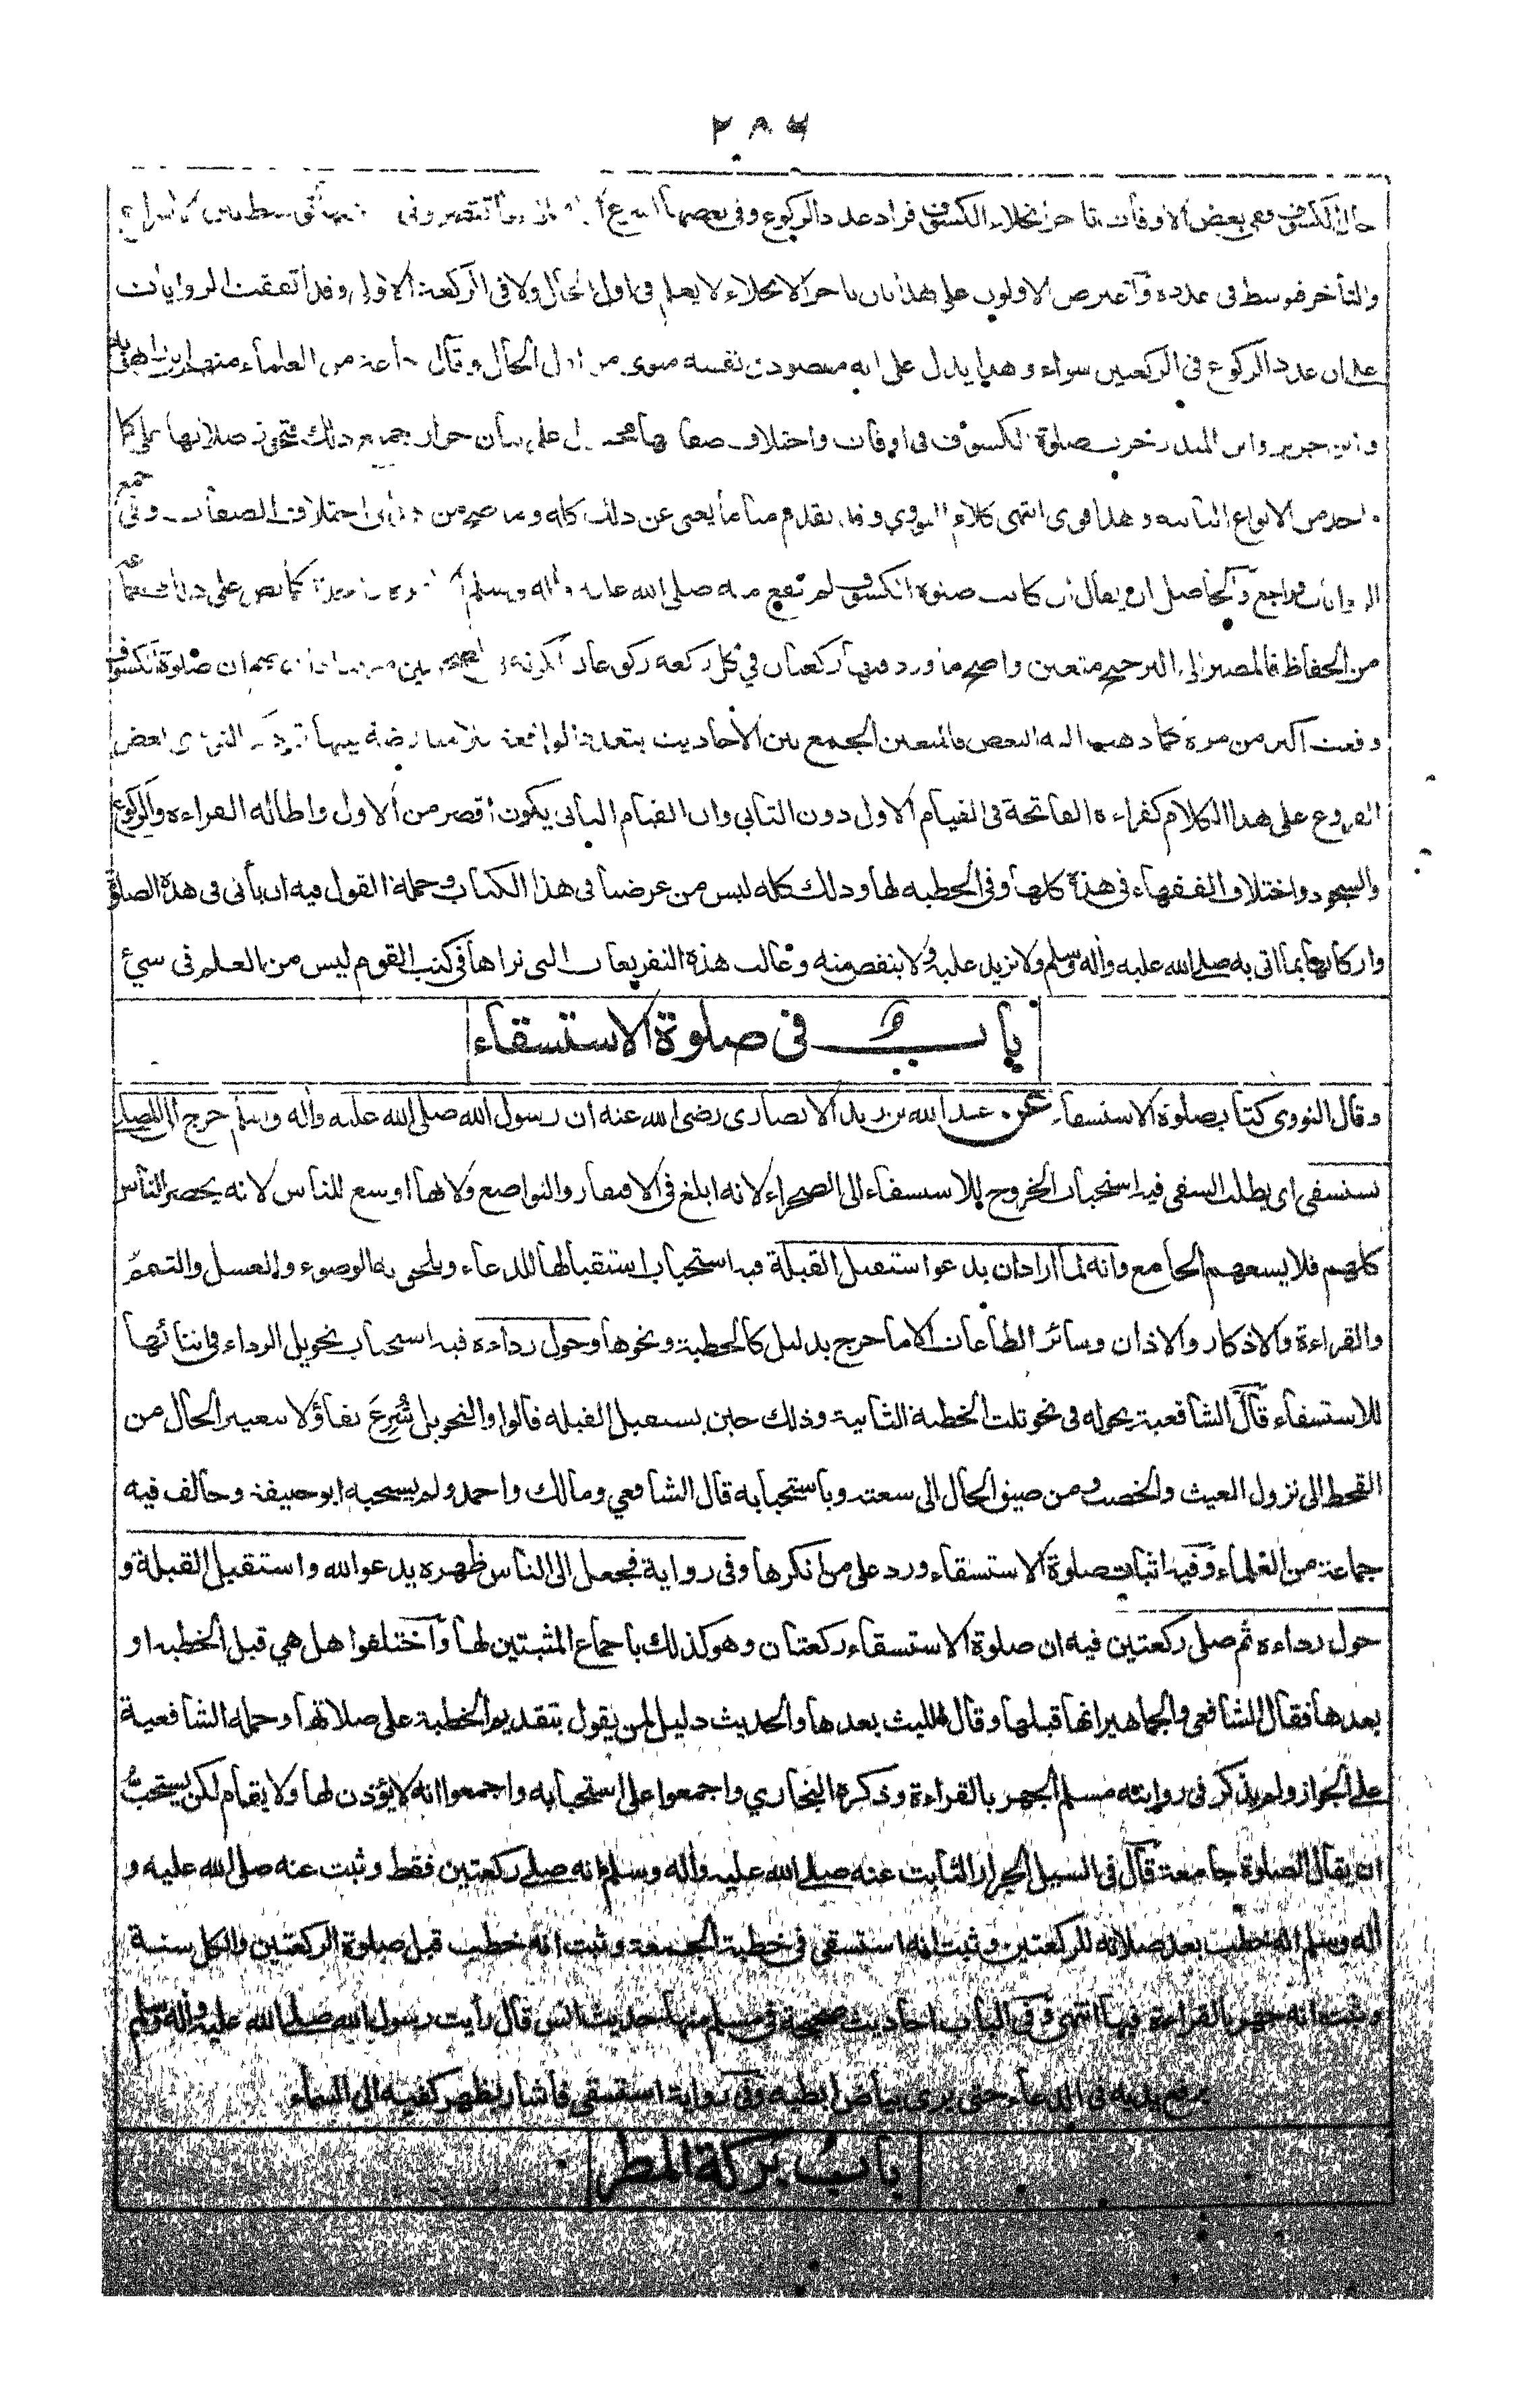 ٢٨٦
حال الكسوف ففي بعض الاوقات تأخر انجلاء الكسوف فزاد عدد الركوع وفي بعضها اسرع
والتأخر فتوسط في عدده واعترض الاولون على هذا بان تأخر الانجلاء لا يعلم في اول الحال ولا في الركعة الاولى وقد اتفقت الروايات
على ان عدد الركوع في الركعتين سواء وهذا يدل على انه مقصود في نفسه منوي من اول الحال وقال جماعة من العلماء منهم
وابن جرير وابن المنذر جرت صلوة الكسوف في اوقات واختلاف صفاتها محمول على بيان جواز جميع ذلك فتجوز صلاتها على كل
واحد من الانواع الثابتة وهذا قوي انتهى كلام النووي وقد تقدم منا ما يغني عن ذلك كله وما صح من اختلاف الصفات وفي جمع
الروايات فراجع والحاصل ان يقال ان كانت صلوة الكسوف لم تقع منه صلى الله عليه وأله وسلم كما نص على ذلك
من الحفاظ فالمصير الى الترجيح متعين واصح ما ورد فيها ركعتان في كل ركعة ركوعان ان صلوة الكسوف
وقعت اكثر من مرة كما ذهب اليه البعض فالمتعين الجمع بين الأحاديث بتعدد الواقعة فلا معارضة بينها النووي بعض
الفروع على هذا الكلام كقراءة الفاتحة في القيام الاول دون الثاني وان القيام الثاني يكون اقصر من الاول واطالة القراءة والركوع
والسجود واختلاف الفقهاء في هذه كلها وفي الخطبة لها وذلك كله ليس من غرضنا في هذا الكتاب وجملة القول فيه ان يأتي في هذه الصلوة
واركانها بما اتى به صلى الله عليه وأله وسلم ولا نزيد عليه ولا ينقص منه وغالب هذه التفريعات التي نراها في كتب القوم ليس من العلم في شيء
باب في صلوة الاستسقاء
وقال النووي كتاب صلوة الاستسقاء عن عبد الله بن زيد الانصاري رضي الله عنه ان رسول الله صلى الله عليه وأله وسلم خرج الى المصلى
يستسقي اي يطلب السقي فيه استحباب الخروج للاستسقاء الى الصحراء لانه ابلغ في الافتقار والتواضع ولانها اوسع للناس لانه يحضر الناس
كلهم فلا يسعهم الجامع وانه لما اراد ان يدعو استقبل القبلة فيه استحباب استقبالها للدعاء ويلحق به الوضوء والغسل والتيمم
والقراءة والاذكار والاذان وسائر الطاعات الا ما خرج بدليل كالخطبة ونحوها وحول رداءه فيه استحباب تحويل الرداء في اثنائها
للاستسقاء قال الشافعية يحوله في نحو ثلث الخطبة الثانية وذلك حين يستقبل القبلة قالوا والتحويل شُرِعَ تفاؤلا بتغيير الحال من
القحط الى نزول الغيث والخصب ومن ضيق الحال الى سعته وباستحبابه قال الشافعي ومالك واحمد ولم يستحبه ابو حنيفة وخالف فيه
جماعة من العلماء وفيه اثبات صلوة الاستسقاء ورد على من انكرها وفي رواية فجعل الى الناس ظهره يدعو الله واستقبل القبلة و
حول رداءه ثم صلى ركعتين فيه ان صلوة الاستسقاء ركعتان وهو كذلك باجماع المثبتين لها واختلفوا هل هي قبل الخطبة او
بعدها فقال الشافعي والجماهير انها قبلها وقال الليث بعدها والحديث دليل لمن يقول بتقديم الخطبة على صلاتها وحمله الشافعية
على الجواز ولم يذكر في روايته مسلم الجهر بالقراءة وذكره البخاري واجمعوا على استحبابه واجمعوا انه لا يؤذن لها ولا يقام لكن يستحبُّ
ان يقال الصلوة جامعة قال في السيل الجرار الثابت عنه صلى الله عليه وأله وسلم انه صلى ركعتين فقط وثبت عنه صلى الله عليه و
أله وسلم انه خطب بعد صلاته للركعتين وثبت انه استسقى في خطبة الجمعة وثبت انه خطب قبل صلوة الركعتين والكل سنة
وثبت انه جهر بالقراءة فيها انتهى وفي الباب احاديث صحيحة في مسلم منها حديث انس قال رأيت رسول الله صلى الله عليه وأله وسلم
يرفع يديه في الدعاء حتى يرى بياض ابطيه وفي رواية استسقى فاشار بظهر كفيه الى السماء
باب بركة المطر